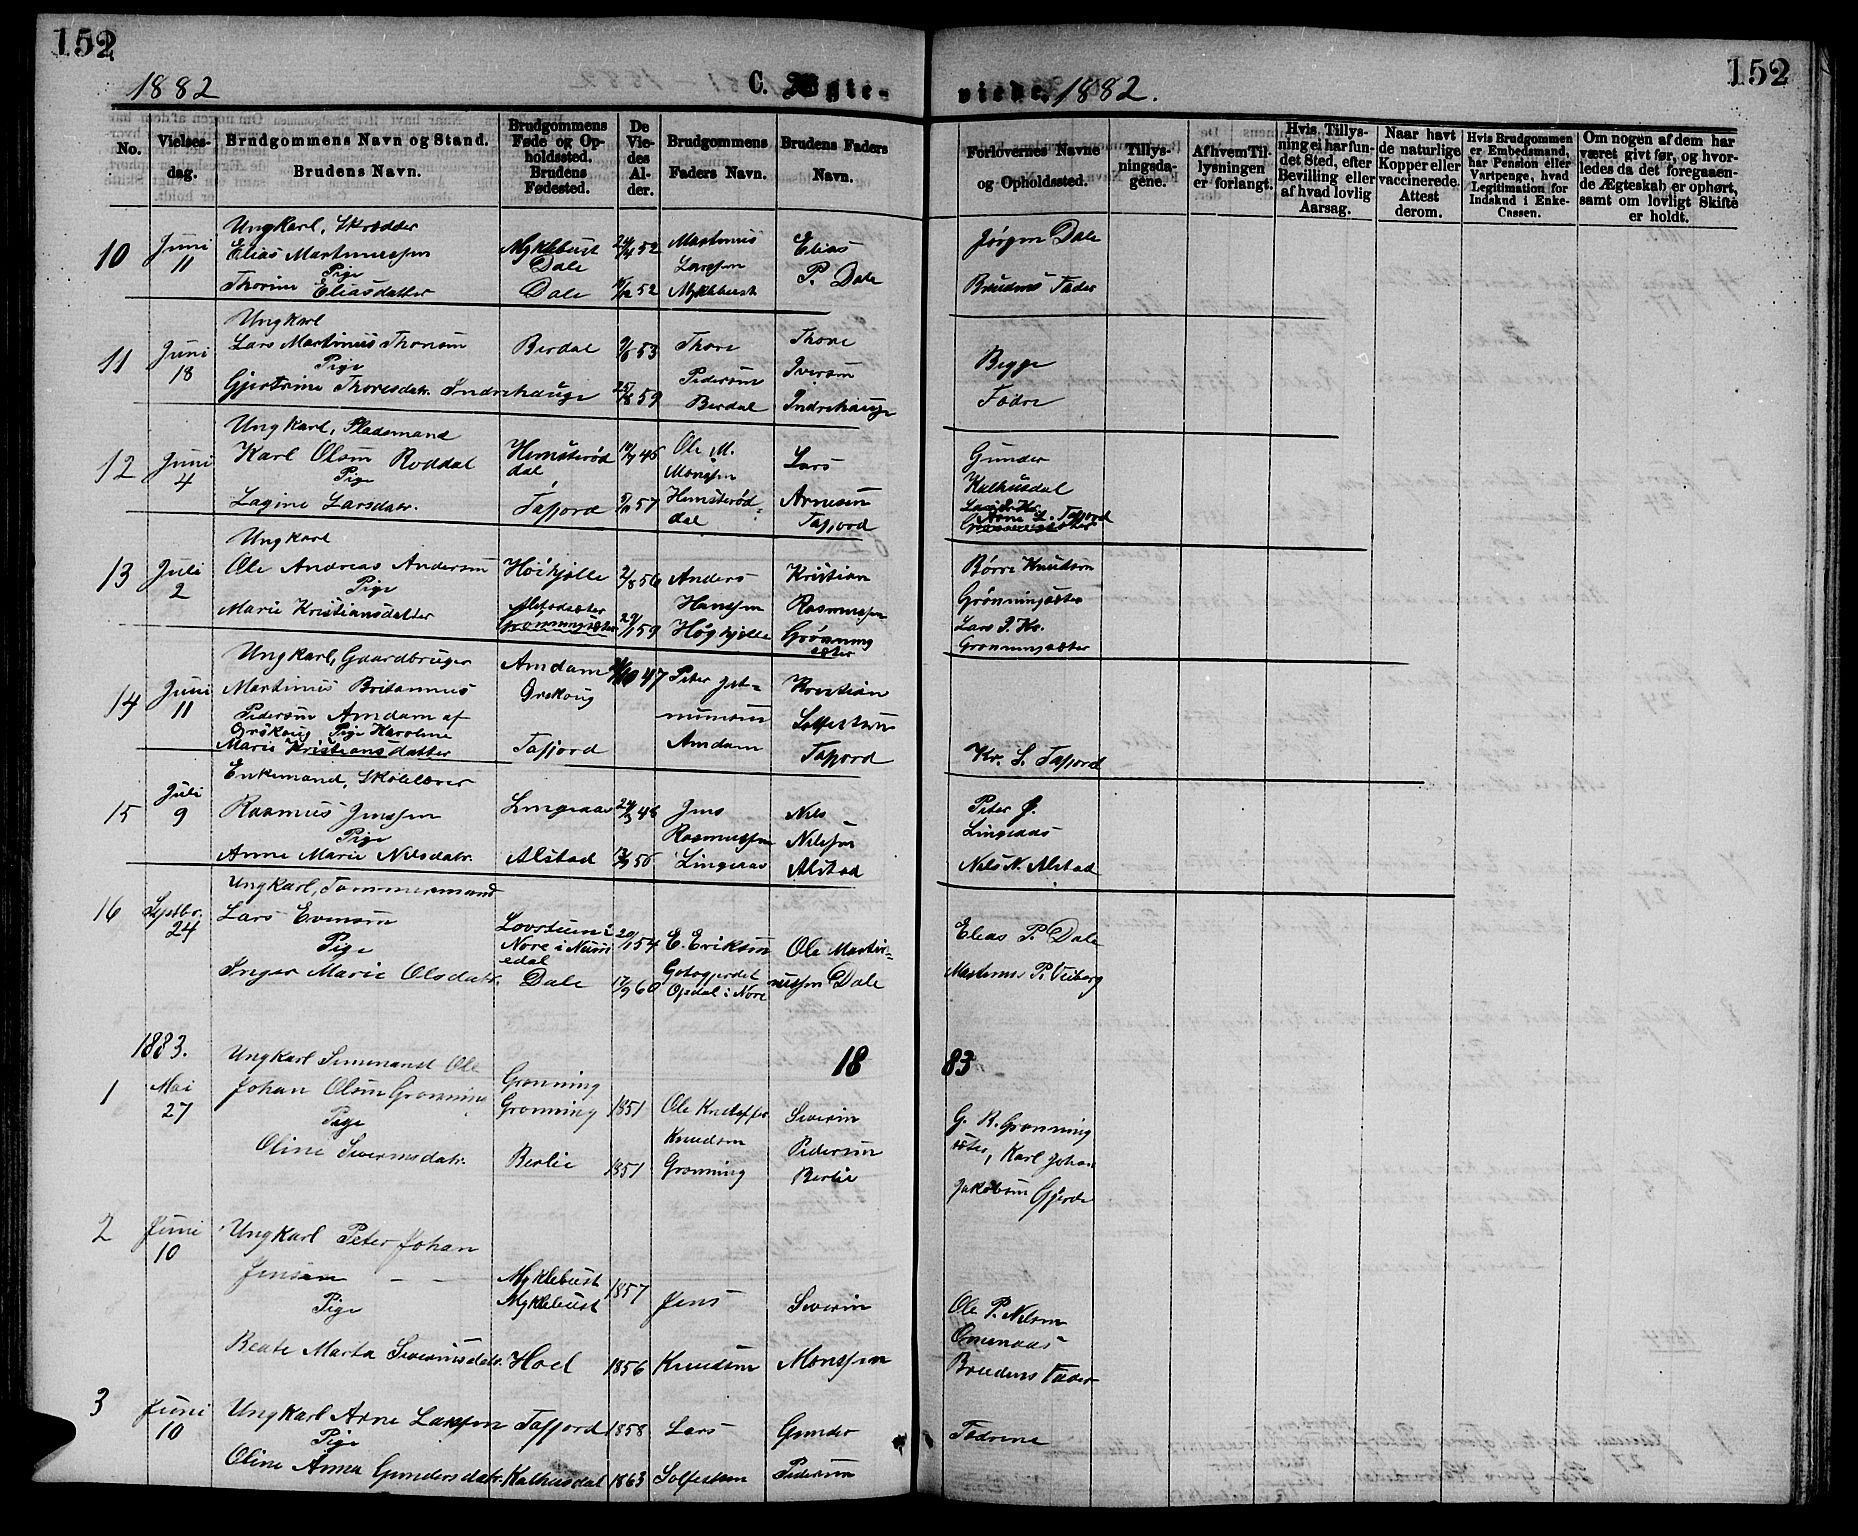 152
152
1882
C. Ægte-
viede. 1882.
No.
Vielses-
dag.
Brudgommens Navn og Stand.
Brudens Navn.
Brudgommens
Føde og Op-
holdssted.
Brudens
Fødested.
De
Vie-
des
Al-
der.
Brudgommens
Faders Navn.
Brudens Faders
Navn.
Forlovernes Navne
og Opholdssted.
Tillys-
ningsda-
gene.
Af hvem Til-
lysningen
er forlangt.
Hvis Tillys-
ning ei har fun-
det Sted, efter
Bevilling eller
af hvad lovlig
Aarsag.
Naar havt
de naturlige
Kopper eller
vaccinerede.
Attest
derom.
Hvis Brudgommen
er Embedsmand,
har Pension eller
Vartpenge, hvad
Legitimation for
Indskud i Enke-
Cassen.
Om nogen af dem har
været givt før, og hvor-
ledes da det foregaaen-
de Ægteskab er ophørt,
samt om lovligt Skifte
er holdt.
10
Juni
11
Ungkarl, Skrædder
Elias Martinussen
Pige
Thorine Eliasdatter
Myklebust
Dale
Dale
52
52
Martinus
Larssen
Myklebust
Elias
P. Dale
Jørgen Dale
Brudens Fader
11
Juni
18
Ungkarl
Lars Martinus Thoresen
Pige
Gjertrine Thoresdatr. Indrehauge
Berdal
53
25/8 59
Thore
Pedersen
Berdal
Thore
Iversen
Indrehauge
Begge
Fædre
12
Juni
4
Ungkarl, Pladsmand
Karl Olsen Roddal
Pige
Lagine Larsdatr.
Hemsterød
dal
Tafjord
45
57
Ole M.
Monssen
Hemsterød-
dal
Lars
Arnesen
Tafjord
Gunder
Kalhusdal
Arne L. Tafjord
13
Juli
2
Ungkarl
Ole Andreas Andersen
Pige
Marie Kristiansdatter
Høihjelle
Alstadsæter
Grønningsæter
2/8 56
29/1 59
Anders
Hanssen
Høghjelle
Kristian
Rasmussen
Grønning
sæter
Børre Knudsen
Grønningsæter
Lars P. Kr.
Grønningsæter
14
Juni
11
Ungkarl, Gaardbruger
Martinus Britannus
Pedersen Amdam af
Ørskoug Pige Karoline
Marie Kristiansdatter
Amdam
Ørskoug
Tafjord
47
Peter Jet-
mundsen
Amdam
Kristian
Solfestsen
Tafjord
Kr. S. Tafjord
15
Juli
9
Enkemand, Skolelærer
Rasmus Jenssen
Pige
Anne Marie Nilsdatr.
Lingeaas
Alstad
46
56
Jens
Rasmussen
Lingeaas
Nils
Nilssen
Alstad
Peter J.
Lingeaas
Nils N. Alstad
16
Septbr.
24
Ungkarl, Tømmermand
Lars Evensen
Pige
Inger Marie Olsdatr.
Nore i Num
edal
Dale
20/1 54
17/9 60
E. Eriksen
Opdal i Nore
Ole Marti-
nussen Dale
Elias P. Dale
Martinus P. Viborg
1883.
18
83
1
Mai
27
Ungkarl Seminarist Ole
Johan Olsen Grønning
Pige
Oline Severinsdatr.
Grønning
Grønning
Berlie
1851
1851
Ole Kristoffer
Knudsen
Grønning
Severin
Pedersen
Berlie
G. R. Grønning
sæter, Karl Johan
Jakobsen Gjerde
2
Juni
10
Ungkarl Peter Johan
Jensen — —
Pige
Beate Marta Severinsdatr.
Myklebust
Myklebust
Hoel
1857
1856
Jens
Knudsen
Severin
Monssen
Ole P. Nilsen
Omenaas
Brudens Fader
3
Juni
10
Ungkarl Arne Larssen
Pige
Oline Anna Gundersdatr.
Tafjord
Kalhusdal
1858
1863
Lars
Solfestsen
Gunder
Pedersen
Fædrene